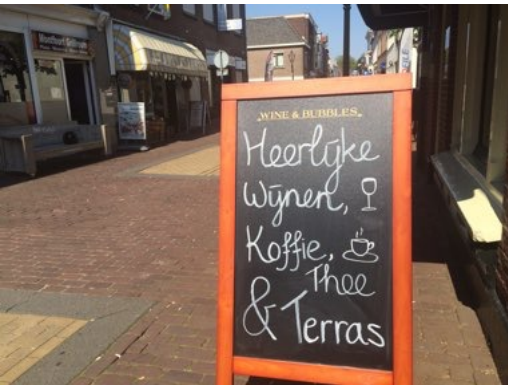 WINE & BUBBLES
Heerlijke
Wijnen,
Koffie,
Thee
& Terras